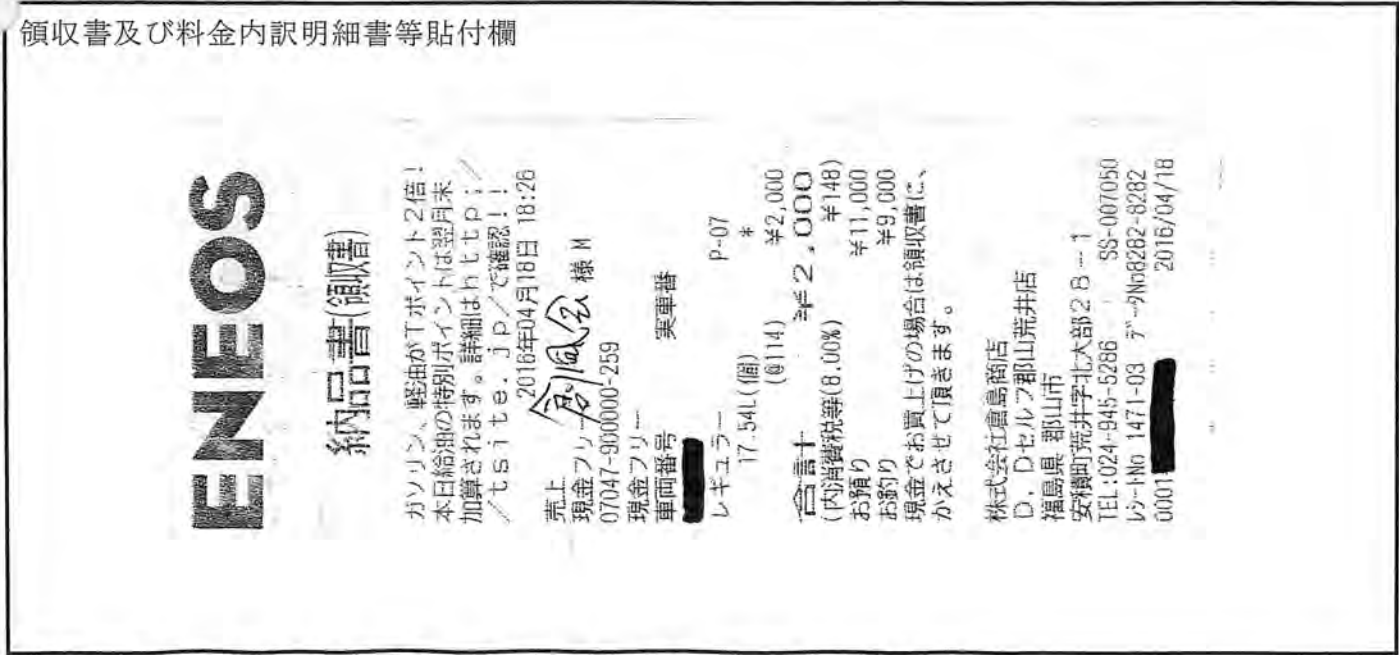 領収書及び料金内訳明細書等貼付欄
ENEOS
納品書(領収書)
ガソリン、軽油がTポイント2倍!
本日給油の特別ポイントは翌月末
加算されます。詳細はhttp:/
/tsite.jp/で確認!!
2016年04月18日 18:26
売上
現金フリー 創風会 様 M
07047-900000-259
現金フリー
車両番号 実車番
レギュラー P-07
17.54L(個) *
(@114) ¥2,000
合計 ¥2,000
(内消費税等(8.00%) ¥148)
お預り ¥11,000
お釣り ¥9,000
現金でお買上げの場合は領収書に、
かえさせて頂きます。
株式会社倉島商店
D.Dセルフ郡山荒井店
福島県 郡山市
安積町荒井字北大部28-1
TEL:024-945-5286 SS-007050
レシートNo 1471-03 データNo8282-8282
0001 2016/04/18